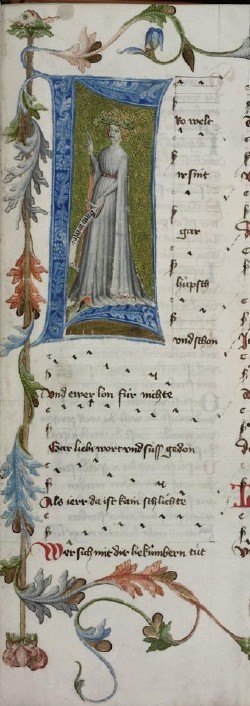 Fro welt
ir sint
gar
hüpsch
vnd schon
vnd ewer lon für nichte
Gar liebi wort vnd süss gedon
Als ierr da ist kain schlichte
Wer sich mit dir bekümbern tůt